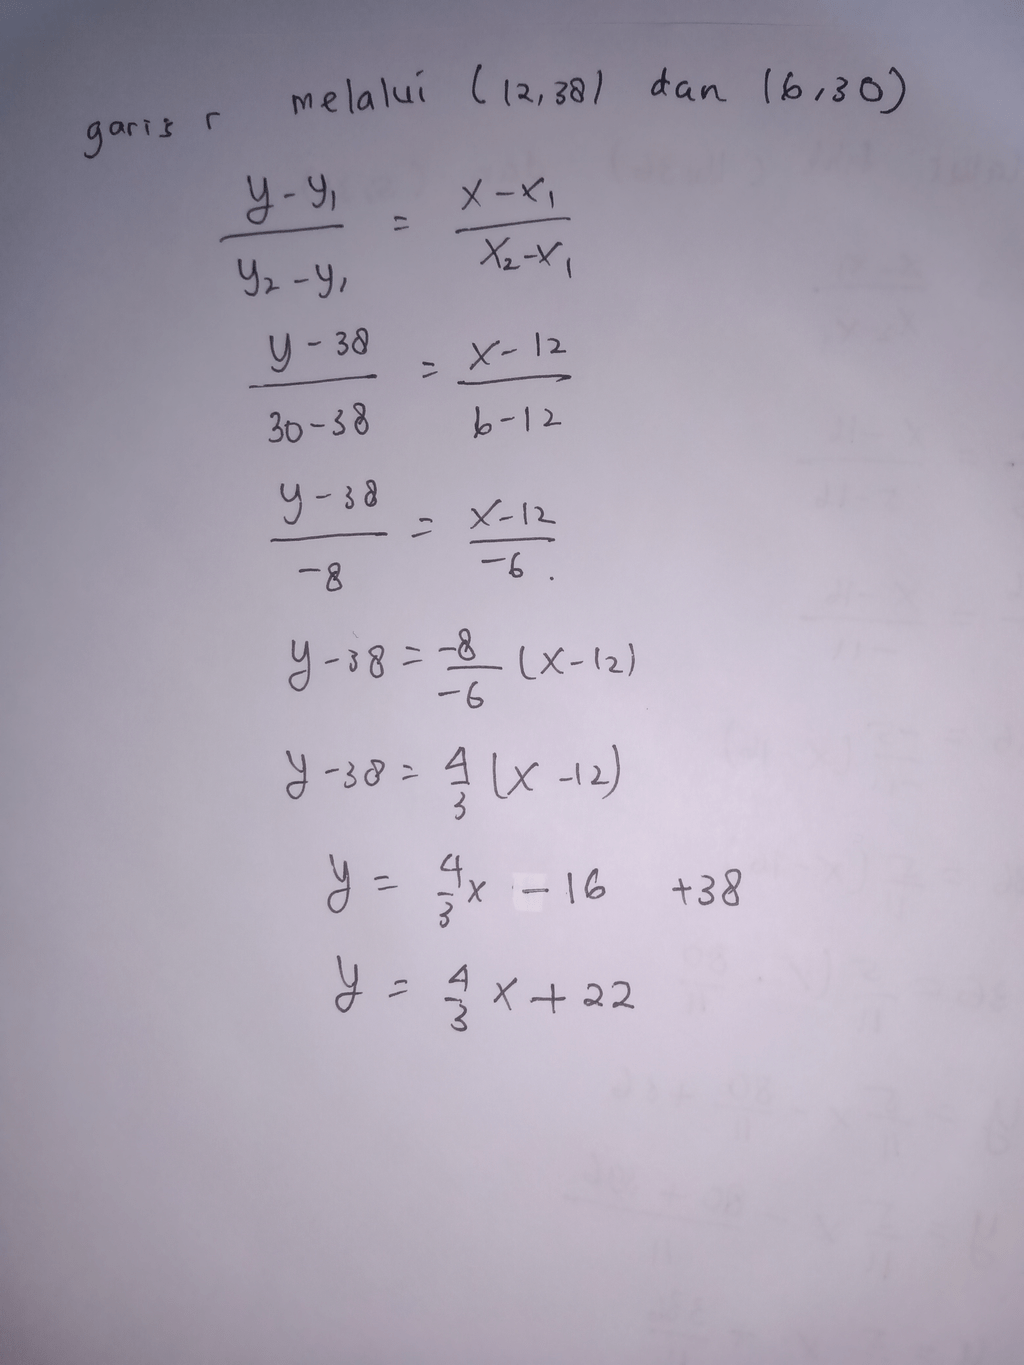 garis r melalui (12,38) dan (6,30)
y-y₁ / y₂-y₁ = x-x₁ / x₂-x₁
y-38 / 30-38 = x-12 / 6-12
y-38 / -8 = x-12 / -6.
y-38 = -8/-6 (x-12)
y-38 = 4/3 (x-12)
y = 4/3 x -16 +38
y = 4/3 x + 22